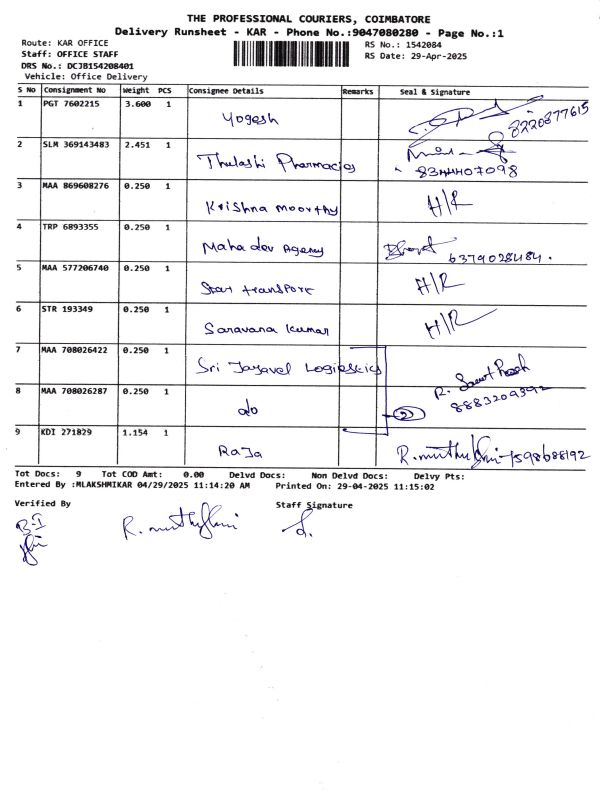 THE PROFESSIONAL COURIERS, COIMBATORE
Delivery Runsheet - KAR - Phone No.:9047080280 - Page No.:1
Route: KAR OFFICE
Staff: OFFICE STAFF
DRS No.: DCJB154208401
Vehicle: Office Delivery
RS No.: 1542084
RS Date: 29-Apr-2025
S No Consignment No Weight PCS Consignee Details Remarks Seal & Signature
1 PGT 7602215 3.600 1 Yogesh 8220877615
2 SLM 369143483 2.451 1 Thulashi Pharmacies
3 MAA 869608276 0.250 1 Krishna moorthy H/R
4 TRP 6893355 0.250 1 Mahadev Agency 6379028484.
5 MAA 577206740 0.250 1 Star transport H/R
6 STR 193349 0.250 1 Saravana kumar H/R
7 MAA 708026422 0.250 1 Sri Jayavel Logistics
8 MAA 708026287 0.250 1 do 2 8883209392
9 KDI 271829 1.154 1 Raja
Tot Docs: 9 Tot COD Amt: 0.00 Delvd Docs: Non Delvd Docs: Delvy Pts:
Entered By :MLAKSHMIKAR 04/29/2025 11:14:20 AM Printed On: 29-04-2025 11:15:02
Verified By Staff Signature